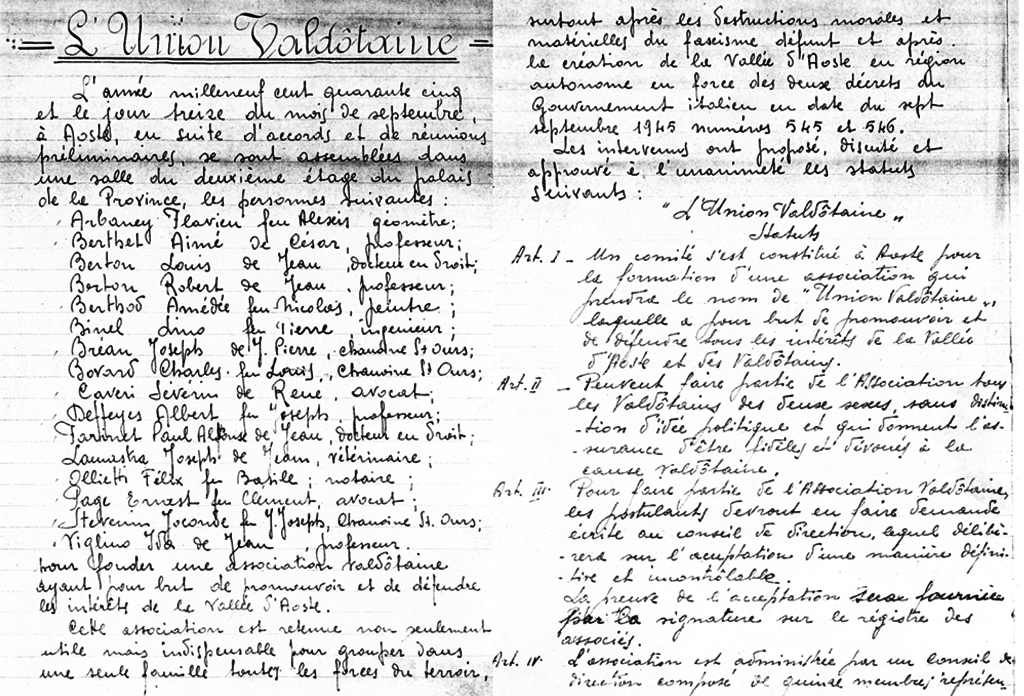 L'Union Valdôtaine
L'année milleneuf cent quarante cinq
et le jour treize du mois de septembre,
à Aoste, en suite d'accords et de réunions
préliminaires, se sont assemblées dans
une salle du deuxième étage du palais
de la Province, les personnes suivantes :
Arbaney Flavien feu Alexis géomètre;
Berthet Aimé de César, professeur;
Berton Louis de Jean, docteur en droit;
Berton Robert de Jean, professeur;
Berthod Amédée feu Nicolas, peintre ;
Binel Lino feu Pierre, ingenieur;
Bréan Joseph de J. Pierre, chanoine St Ours;
Bovard Charles feu Louis, Chanoine St Ours;
Caveri Sévérin de René, avocat;
Deffeyes Albert feu Joseph, professeur;
Farinet Paul Alfonse de Jean, docteur en droit;
Lamastra Joseph de Jean, vétérinaire ;
Ollietti Félix feu Basile; notaire ;
Page Ernest feu Clément, avocat ;
Stevenin Joconde feu J. Joseph, Chanoine St. Ours;
Viglino Ida de Jean professeur.
pour fonder une association valdôtaine
ayant pour but de promouvoir et de défendre
les intérets de la Vallée d'Aoste.
Cette association est retenue non seulement
utile mais indispensable pour grouper dans
une seule famille toutes les forces du terroir,
surtout après les destructions morales et
matérielles du fascisme défunt et après
la création de la Vallée d'Aoste en région
autonome en force des deux décrets du
Gouvernement italien en date du sept
septembre 1945 numéros 545 et 546.
Les intervenus ont proposé, discuté et
approuvé à l'unanimité les statuts
suivants :
"L'Union Valdôtaine"
Statuts
Art. I - Un comité s'est constitué à Aoste pour
la formation d'une association qui
prendra le nom de "Union Valdôtaine",
laquelle a pour but de promouvoir et
de défendre tous les intérêts de la Vallée
d'Aoste et des Valdôtains.
Art. II - Peuvent faire partie de l'Association tous
les Valdôtains des deux sexes, sans distin-
-tion d'idée politique et qui donnent l'as-
-surance d'être fidèles et dévoués à la
cause Valdôtaine.
Art. III - Pour faire partie de l'Association Valdôtaine,
les postulants devront en faire demande
écrite au conseil de direction, lequel délibè-
-rera sur l'acceptation d'une manière défini-
-tive et incontrôlable.
La preuve de l'acceptation sera fournie
par la signature sur le régistre des
associés.
Art. IV - L'association est administrée par un Conseil de
direction composé de quinze membres, représen-